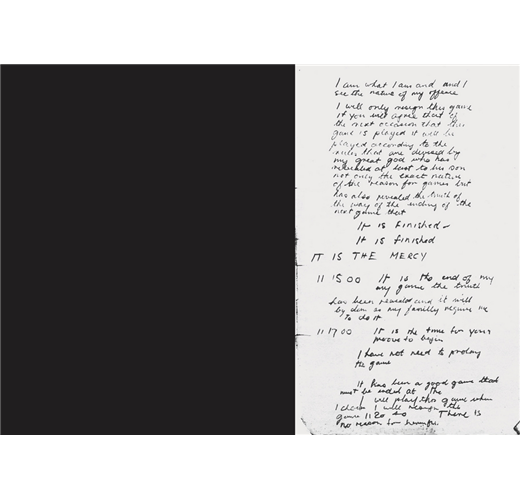 I am what I am and and I
see the nature of my offence
I will only resign this game
if you will agree that of
the next occasion that this
game is played it will be
played according to the
rules that are devised by
my great god who has
revealed at last to his son
not only the exact nature
of the reason for games but
has also revealed the truth of
the way of the ending of the
next game that
It is finished -
It is finished
IT IS THE MERCY
11 15 00 It is the end of my
my game the truth
has been revealed and it will
by don as my family require me
to do it
11 17 00 It is the time for your
move to begin
I have not need to prolong
the game
It has been a good game that
must be ended at the
I will play this game when
I chose I will resign the
game 11 20 There is
no reason for harmful